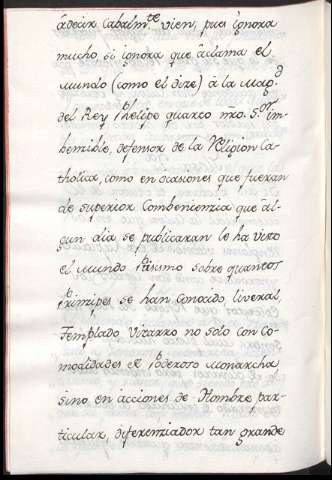 âdecir Cabalm.te vien, pues ignora
mucho si ignora que âclama el
Mundo (como el dize) â la Mag.d
del Rey Phelipe quarto nro. S.or im-
bemzible, defensor de la Religion Ca-
tholica, como en ocasiones que fueran
de superior Combeniencia que âl-
gun dia se publicaran le ha visto
el Mundo sobre quantos
Prinzipes se han Conozido, liveral,
Templado Vizarro no solo con Co-
modidades de Poderoso Monarcha
sino en acciones de Hombre par-
ticular, diferenziador tan grande